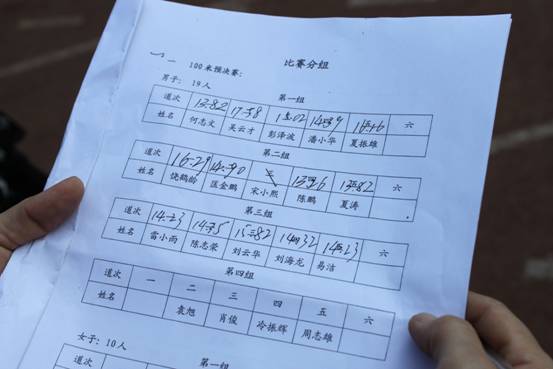 比赛分组
一、100米预决赛：
男子：19人
第一组
道次 13.82 17.58 14.39 六
姓名 何志文 吴云才 彭泽波 潘小华 夏振雄
第二组
道次 16.29 14.90 三 六
姓名 饶鹤龄 匡金鹏 宋小熙 陈鹏 夏涛
第三组
道次 14.23 14.35 15.82 14.32 14.23 六
姓名 雷小雨 陈志荣 刘云华 刘海龙 易洁
第四组
道次 一 二 三 四 五 六
姓名 袁旭 肖俊 冷振辉 周志雄
女子：10人
第一组
道次